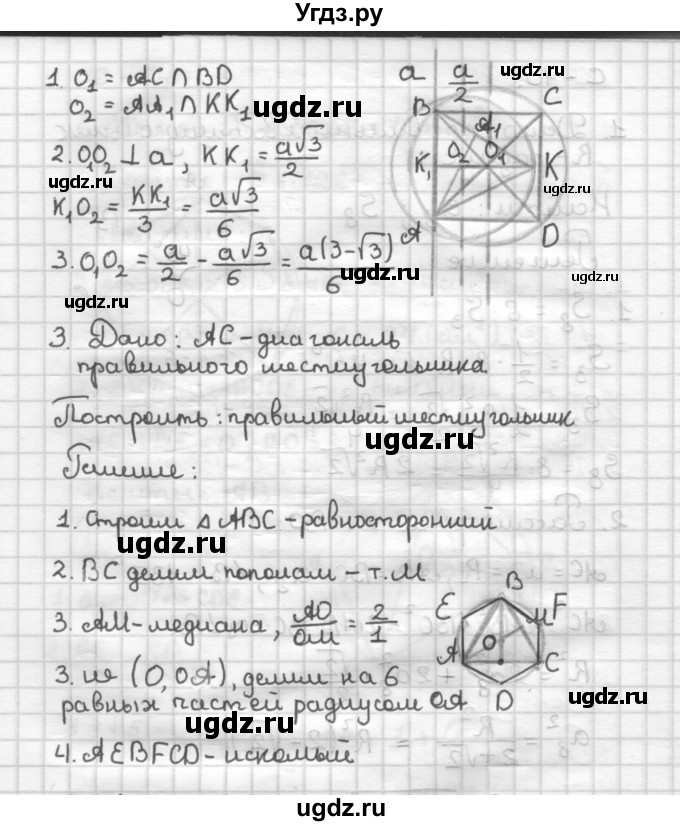 Угдз.ру
1. O₁ = AC ∩ BD
O₂ = AA₁ ∩ KK₁
ugdz.ru
2. O₁O₂ ⊥ a, KK₁ = a√3/2
ugdz.ru
K₁O₂ = KK₁/3 = a√3/6
ugdz.ru
3. O₁O₂ = a/2 - a√3/6 = a(3-√3)/6
ugdz.ru
ugdz.ru
a a/2
B C
A₁
K₁ O₂ O₁ K
A D
ugdz.ru
ugdz.ru
ugdz.ru
3. Дано: AC - диагональ
правильного шестиугольника.
Построить: правильный шестиугольник
ugdz.ru
Решение:
1. Строим △ ABC - равносторонний
ugdz.ru
2. BC делим пополам - т. M
3. AM - медиана, AO/OM = 2/1
3. из (O, OA), делим на 6
равных частей радиусом OA
ugdz.ru
4. AEBFCD - искомый
B
E M F
O
A C
D
ugdz.ru
ugdz.ru
ugdz.ru